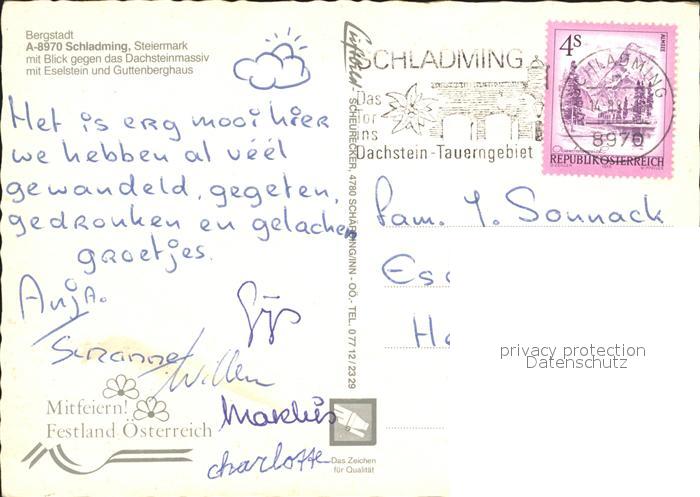 Bergstadt
A-8970 Schladming, Steiermark
mit Blick gegen das Dachsteinmassiv
mit Eselstein und Guttenberghaus
Het is erg mooi hier
we hebben al véél
gewandeld, gegeten,
gedronken en gelachen
groetjes.
Anja.
Gijs
Suzanne
Willem
Markus
charlotte
Mitfeiern!
Festland Österreich
SCHEURECKER, 4780 SCHÄRDING/INN - OÖ. - TEL. 0 77 12 / 23 29
Das Zeichen
für Qualität
SCHLADMING
Das
Tor
ins
Dachstein-Tauerngebiet
SCHLADMING
8970
4S
ALMSEE
REPUBLIK ÖSTERREICH
Fam. J. Sonnack
Es
Ha
privacy protection
Datenschutz